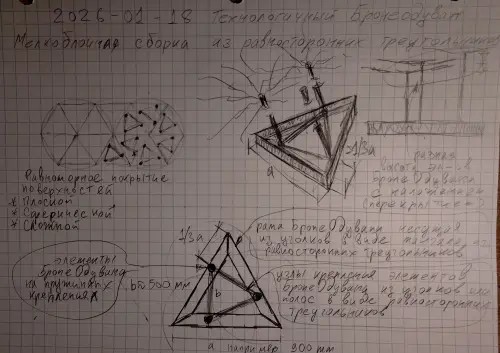 2026-01-18 Технологичный БронеОдуван
Мелкоблочная сборка из равносторонних треугольников
Равномерное покрытие
поверхностей
* Плоской
* Сферической
* Сложной
a
1/3a
разная
высота
БронеОдувана
с наложением
(перекрытием)
1/3a
рама БронеОдувана несущая
из уголков в виде
равносторонних треугольников
элементы
БронеОдувана
на пружинных
креплениях
b≈500 мм
b
узлы крепления элементов
БронеОдувана из уголков или
полос в виде равносторонних
треугольников
a например 900 мм